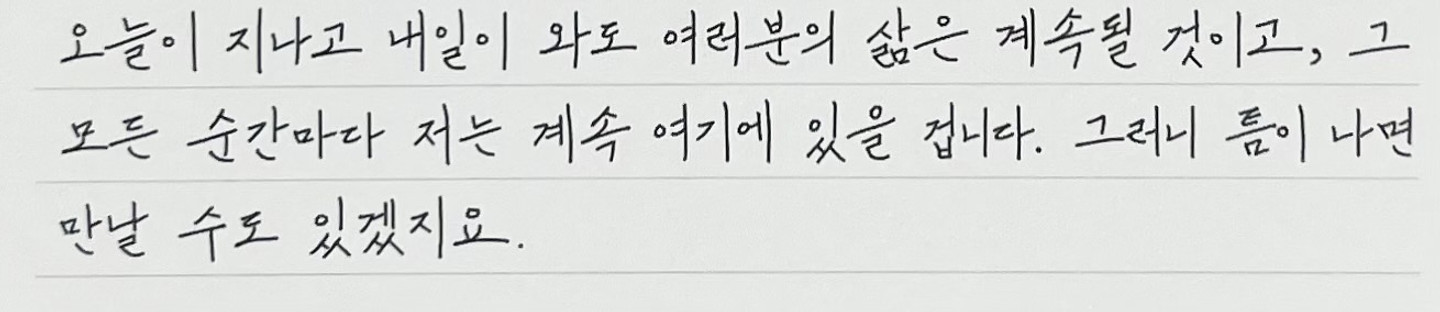 오늘이 지나고 내일이 와도 여러분의 삶은 계속될 것이고, 그
모든 순간마다 저는 계속 여기에 있을 겁니다. 그러니 틈이 나면
만날 수도 있겠지요.